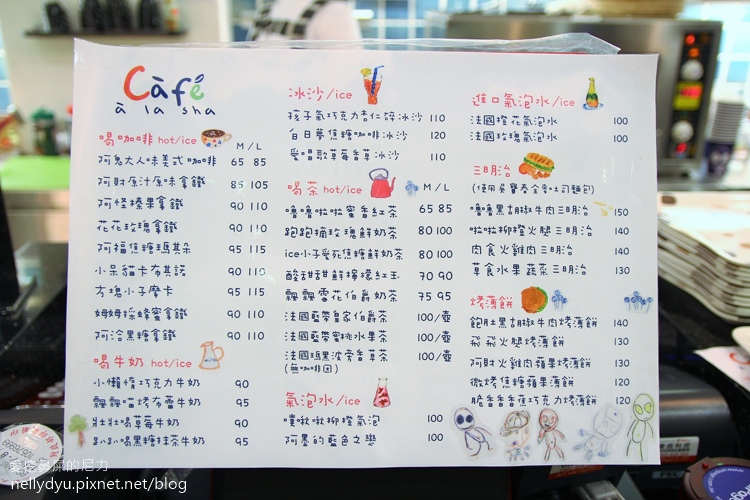 Café
à la sha
喝咖啡 hot/ice M/L
阿兔大人味美式咖啡 65 85
阿財原汁原味拿鐵 85 105
阿怪榛果拿鐵 90 110
花花玫瑰拿鐵 90 110
阿福焦糖瑪其朵 95 115
小呆貓卡布其諾 90 110
方塊小子摩卡 95 115
姆姆採蜂蜜拿鐵 90 110
阿洽黑糖拿鐵 90 110
喝牛奶 hot/ice
小懶惰巧克力牛奶 90
飄飄喵烤布蕾牛奶 95
壯壯喝草莓牛奶 90
趴趴喝黑糖抹茶牛奶 95
冰沙/ice
孩子氣巧克力杏仁碎冰沙 110
白日夢焦糖咖啡冰沙 120
愛唱歌草莓香草冰沙 110
喝茶 hot/ice M/L
嚕嚕啦啦蜜香紅茶 65 85
跑跑擒玫瑰鮮奶茶 80 100
ice小子愛死焦糖鮮奶茶 80 100
酸甜甜鮮檸檬紅玉 70 90
飄飄雪花伯爵奶茶 75 95
法國藍帶皇家伯爵茶 100/壺
法國藍帶蜜桃水果茶 100/壺
法國瑪黑波旁香草茶 100/壺
(無咖啡因)
氣泡水/ice
噗啾啾柳橙氣泡 100
阿默的藍色之戀 100
進口氣泡水/ice
法國橙花氣泡水 100
法國玫瑰氣泡水 100
三明治
(使用吳寶春全麥吐司麵包)
嚕嚕黑胡椒牛肉三明治 150
啦啦柳橙火腿三明治 140
肉食火雞肉三明治 140
草食水果蔬菜三明治 130
烤薄餅
飽肚黑胡椒牛肉烤薄餅 140
飛飛火腿烤薄餅 130
阿財火雞肉蘋果烤薄餅 130
微烤焦糖蘋果薄餅 120
脆香香香蕉巧克力烤薄餅 120
nellydyu.pixnet.net/blog